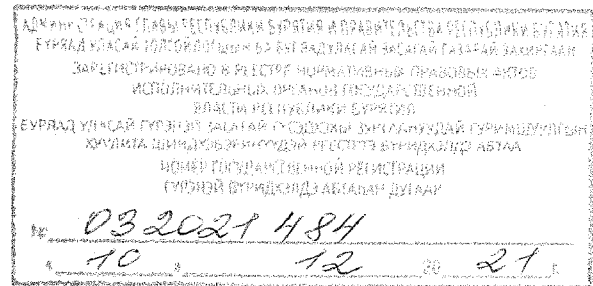 АДМИНИСТРАЦИЯ ГЛАВЫ РЕСПУБЛИКИ БУРЯТИЯ И ПРАВИТЕЛЬСТВА РЕСПУБЛИКИ БУРЯТИЯ
БУРЯАД УЛАСАЙ ТОЛГОЙЛОГШЫН БА БУРЯАД УЛАСАЙ ЗАСАГАЙ ГАЗАРАЙ ЗАХИРГААН
ЗАРЕГИСТРИРОВАНО В РЕЕСТРЕ НОРМАТИВНЫХ ПРАВОВЫХ АКТОВ
ИСПОЛНИТЕЛЬНЫХ ОРГАНОВ ГОСУДАРСТВЕННОЙ
ВЛАСТИ РЕСПУБЛИКИ БУРЯТИЯ
БУРЯАД УЛАСАЙ ГҮРЭНЭЙ ЗАСАГАЙ
ХУУЛИТА РЕЕСТРТЭ БҮРИДХЭЛДЭ АБТАА
НОМЕР ГОСУДАРСТВЕННОЙ РЕГИСТРАЦИИ
ГҮРЭНЭЙ БҮРИДХЭЛДЭ АБТАҺАН ДУГААР
№ 032021484
« 10 » 12 20 21 г.